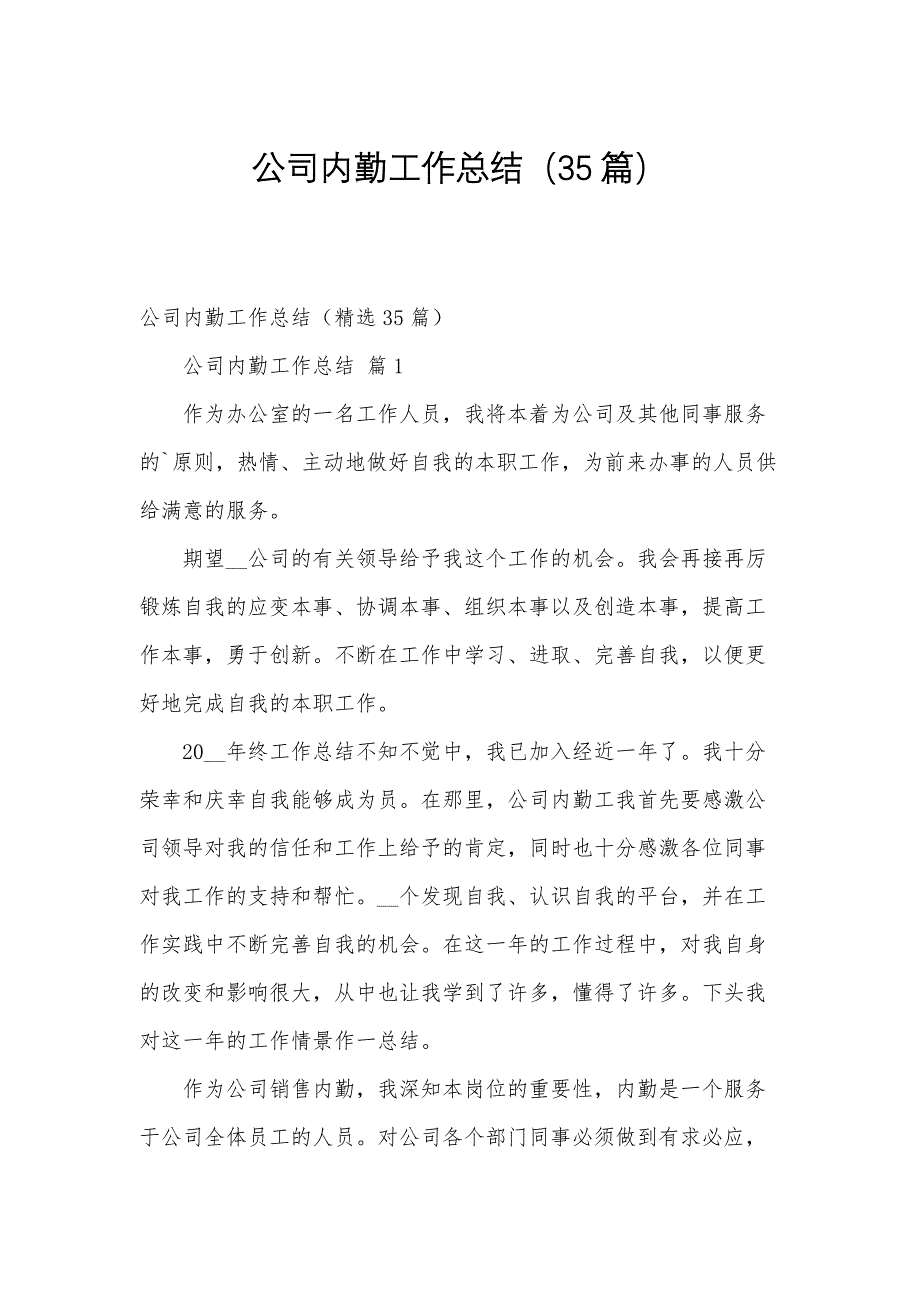 公司内勤工作总结（35篇）
公司内勤工作总结（精选35篇）
公司内勤工作总结 篇1
作为办公室的一名工作人员，我将本着为公司及其他同事服务
的`原则，热情、主动地做好自我的本职工作，为前来办事的人员供
给满意的服务。
期望__公司的有关领导给予我这个工作的机会。我会再接再厉
锻炼自我的应变本事、协调本事、组织本事以及创造本事，提高工
作本事，勇于创新。不断在工作中学习、进取、完善自我，以便更
好地完成自我的本职工作。
20__年终工作总结不知不觉中，我已加入经近一年了。我十分
荣幸和庆幸自我能够成为员。在那里，公司内勤工我首先要感激公
司领导对我的信任和工作上给予的肯定，同时也十分感激各位同事
对我工作的支持和帮忙。__个发现自我、认识自我的平台，并在工
作实践中不断完善自我的机会。在这一年的工作过程中，对我自身
的改变和影响很大，从中也让我学到了许多，懂得了许多。下头我
对这一年的工作情景作一总结。
作为公司销售内勤，我深知本岗位的重要性，内勤是一个服务
于公司全体员工的人员。对公司各个部门同事必须做到有求必应，